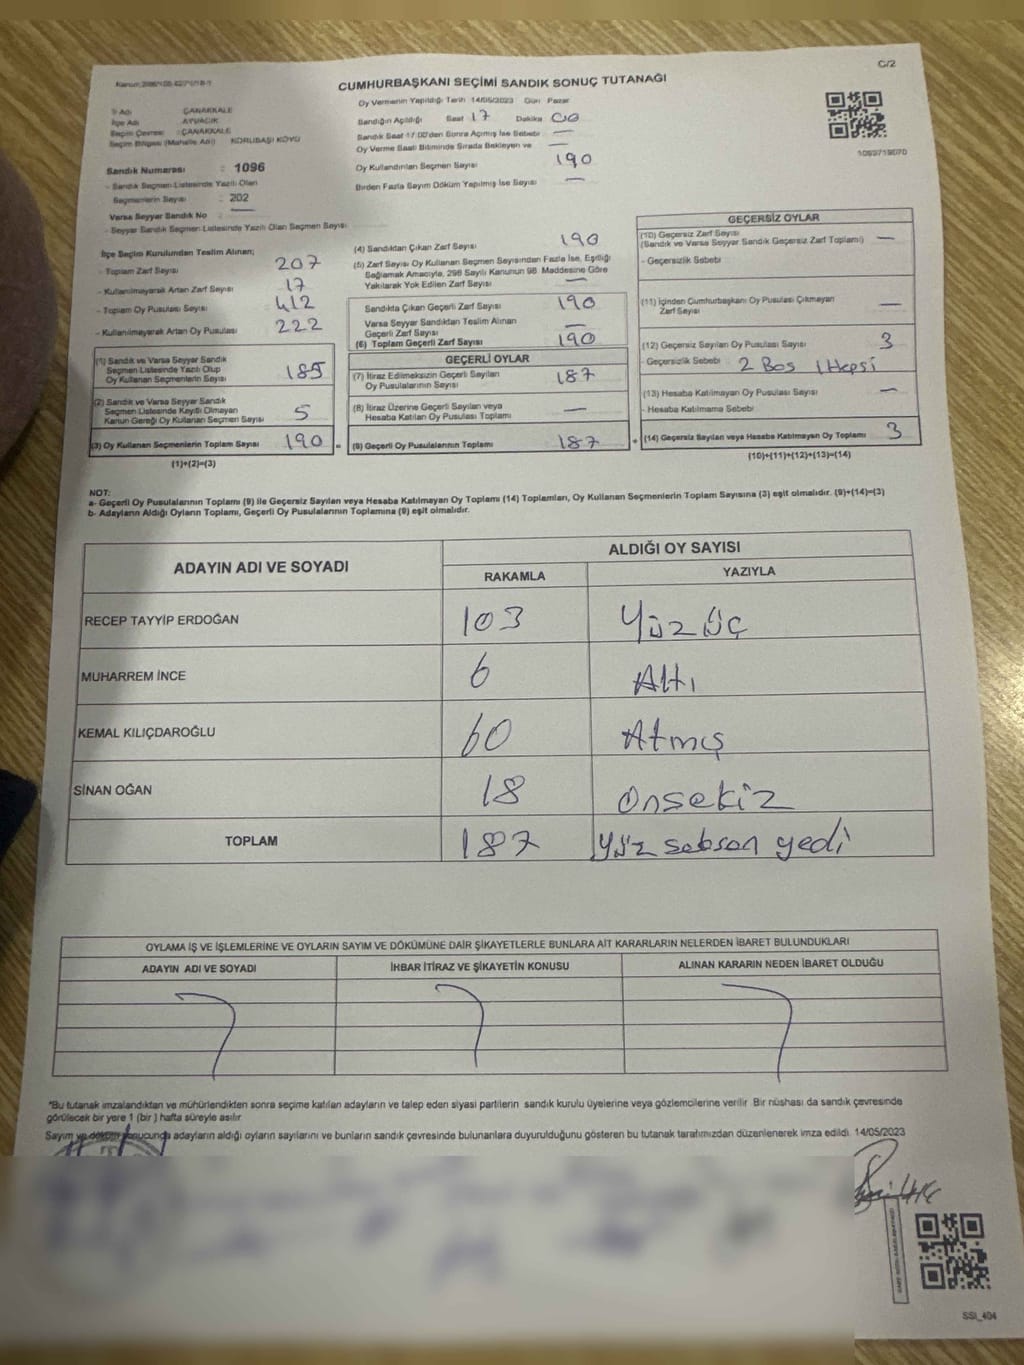 C/2
CUMHURBAŞKANI SEÇİMİ SANDIK SONUÇ TUTANAĞI
İl Adı ÇANAKKALE
İlçe Adı AYVACIK
Seçim Çevresi : ÇANAKKALE
Seçim Bölgesi (Mahalle Adı) KORUBAŞI KÖYÜ
Sandık Numarası : 1096
- Sandık Seçmen Listesinde Yazılı Olan
Seçmenlerin Sayısı : 202
Varsa Seyyar Sandık No
- Seyyar Sandık Seçmen Listesinde Yazılı Olan Seçmen Sayısı
Oy Vermenin Yapıldığı Tarih 14/05/2023 Gün Pazar
Sandığın Açıldığı Saat 17 Dakika 00
Sandık Saat 17.00'den Sonra Açılmış İse Sebebi —
Oy Verme Saati Bitiminde Sırada Bekleyen ve —
Oy Kullandırılan Seçmen Sayısı 190
Birden Fazla Sayım Döküm Yapılmış İse Sayısı —
1099719070
İlçe Seçim Kurulundan Teslim Alınan;
- Toplam Zarf Sayısı 207
- Kullanılmayarak Artan Zarf Sayısı 17
- Toplam Oy Pusulası Sayısı 412
- Kullanılmayarak Artan Oy Pusulası 222
(1) Sandık ve Varsa Seyyar Sandık
Seçmen Listesinde Yazılı Olup
Oy Kullanan Seçmenlerin Sayısı 185
(2) Sandık ve Varsa Seyyar Sandık
Seçmen Listesinde Kayıtlı Olmayan
Kanun Gereği Oy Kullanan Seçmen Sayısı 5
(3) Oy Kullanan Seçmenlerin Toplam Sayısı 190 =
(1)+(2)=(3)
(4) Sandıktan Çıkan Zarf Sayısı 190
(5) Zarf Sayısı Oy Kullanan Seçmen Sayısından Fazla İse, Eşitliği
Sağlamak Amacıyla, 298 Sayılı Kanunun 98. Maddesine Göre
Yakılarak Yok Edilen Zarf Sayısı —
Sandıkta Çıkan Geçerli Zarf Sayısı 190
Varsa Seyyar Sandıktan Teslim Alınan
Geçerli Zarf Sayısı —
(6) Toplam Geçerli Zarf Sayısı 190
GEÇERLİ OYLAR
(7) İtiraz Edilmeksizin Geçerli Sayılan
Oy Pusulalarının Sayısı 187
(8) İtiraz Üzerine Geçerli Sayılan veya
Hesaba Katılan Oy Pusulası Toplamı —
(9) Geçerli Oy Pusulalarının Toplamı 187 +
GEÇERSİZ OYLAR
(10) Geçersiz Zarf Sayısı
(Sandık ve Varsa Seyyar Sandık Geçersiz Zarf Toplamı) —
- Geçersizlik Sebebi
(11) İçinden Cumhurbaşkanı Oy Pusulası Çıkmayan
Zarf Sayısı —
(12) Geçersiz Sayılan Oy Pusulası Sayısı 3
- Geçersizlik Sebebi 2 Boş 1 Hepsi
(13) Hesaba Katılmayan Oy Pusulası Sayısı —
- Hesaba Katılmama Sebebi
(14) Geçersiz Sayılan veya Hesaba Katılmayan Oy Toplamı 3
(10)+(11)+(12)+(13)=(14)
NOT:
a- Geçerli Oy Pusulalarının Toplamı (9) ile Geçersiz Sayılan veya Hesaba Katılmayan Oy Toplamı (14) Toplamları, Oy Kullanan Seçmenlerin Toplam Sayısına (3) eşit olmalıdır. (9)+(14)=(3)
b- Adayların Aldığı Oyların Toplamı, Geçerli Oy Pusulalarının Toplamına (9) eşit olmalıdır.
ADAYIN ADI VE SOYADI ALDIĞI OY SAYISI
RAKAMLA YAZIYLA
RECEP TAYYİP ERDOĞAN 103 Yüz üç
MUHARREM İNCE 6 Altı
KEMAL KILIÇDAROĞLU 60 Atmış
SİNAN OĞAN 18 Onsekiz
TOPLAM 187 Yüz seksen yedi
OYLAMA İŞ VE İŞLEMLERİNE VE OYLARIN SAYIM VE DÖKÜMÜNE DAİR ŞİKAYETLERLE BUNLARA AİT KARARLARIN NELERDEN İBARET BULUNDUKLARI
ADAYIN ADI VE SOYADI İHBAR İTİRAZ VE ŞİKAYETİN KONUSU ALINAN KARARIN NEDEN İBARET OLDUĞU
*Bu tutanak imzalandıktan ve mühürlendikten sonra seçime katılan adayların ve talep eden siyasi partilerin sandık kurulu üyelerine veya gözlemcilerine verilir. Bir nüshası da sandık çevresinde
görülecek bir yere 1 (bir ) hafta süreyle asılır.
Sayım ve döküm sonucunda adayların aldığı oyların sayılarını ve bunların sandık çevresinde bulunanlara duyurulduğunu gösteren bu tutanak tarafımızdan düzenlenerek imza edildi. 14/05/2023
SSI_404